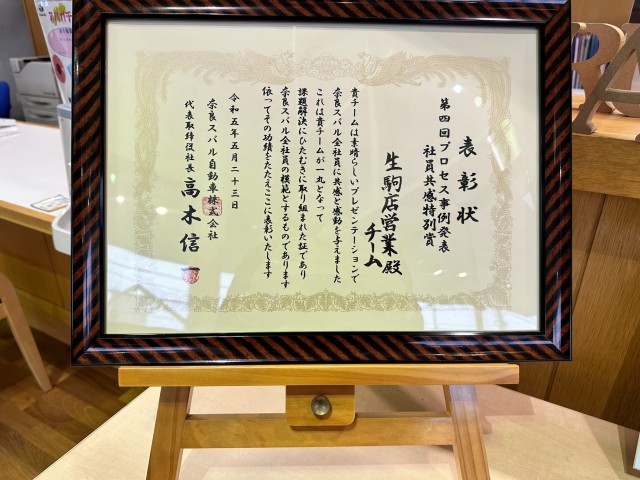 表彰状
第四回プロセス事例発表
社員共感特別賞
生駒店営業
チーム
殿
貴チームは素晴らしいプレゼンテーションで
奈良スバル全社員に共感と感動を与えました
これは貴チームが一丸となって
課題解決にひたむきに取り組まれた証であり
奈良スバル全社員の模範とするものであります
依ってその功績をたたえここに表彰いたします
令和五年五月二十三日
奈良スバル自動車株式会社
代表取締役社長 高木信一